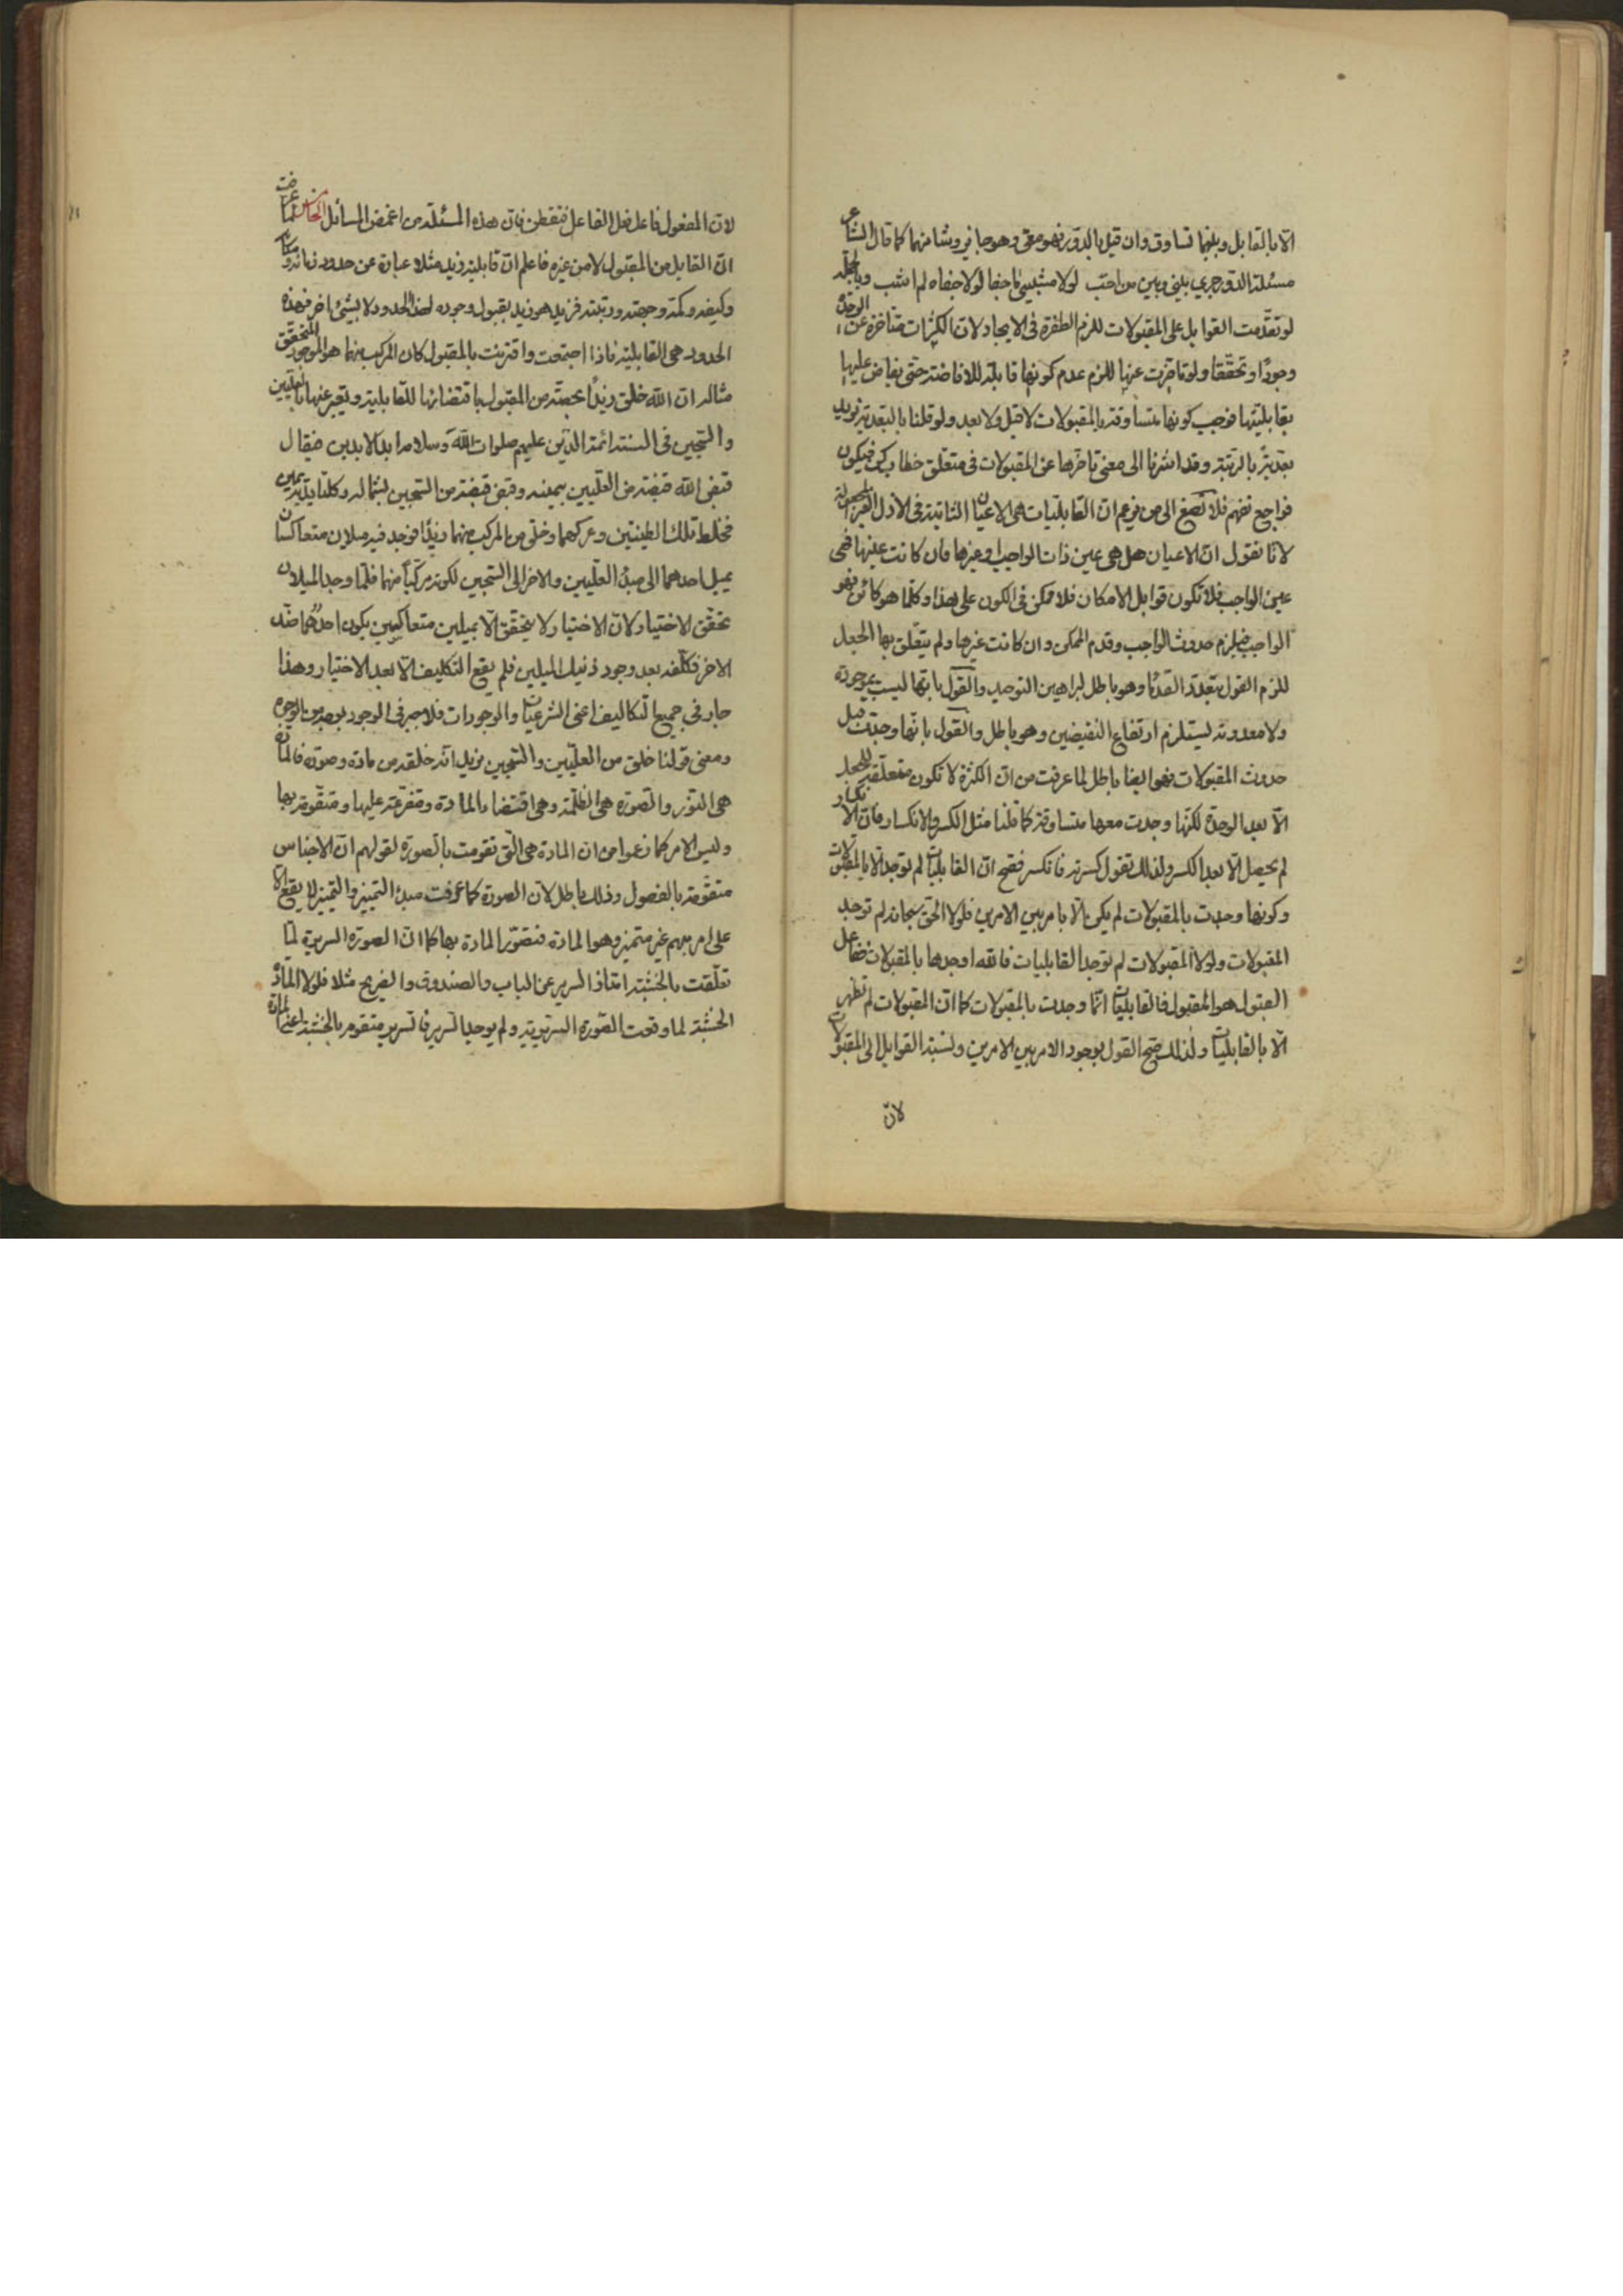 الا بالقابل وبينهما تساوق وان قيل بالدور فهو معي وهو جايز وشاهنهما كما قال الشاعر
مسئلة الدور جرى بيني وبين من احب لولا مشيبي ما جفا لولا جفاه لم اشب وبالجملة
لو تقدمت القوابل على المقبولات للزم الطفرة في الايجاد لانها كثرات متأخرة عن الوحدة
وجودًا وتحققا ولو تأخرت عنها للزم عدم كونها قابلة للافاضة حتى يفاض عليها
بقابليتها فوجب كونها متساوقة بالمقبولات لا قبل ولا بعد ولو قلنا بالبعدية نريد
بعدية بالرتبة وقد اشرنا الى معنى تأخرها عن المقبولات في متعلق خطاب كن فيكون
فراجع تفهم فلا تصغ الى من زعم ان القابليات هي الاعيان الثابتة في الازل الغير المجعولة
لانا نقول ان الاعيان هل هي عين ذات الواجب او غيرها فان كانت عينها فهي
عين الواجب فلا تكون قوابل الامكان فلا ممكن في الكون على هذا وكلما هو كائن فهو
الواجب فيلزم حدوث الواجب وقدم الممكن وان كانت غيرها ولم يتعلق بها الجعل
للزم القول بتعدد القدماء وهو باطل لبراهين التوحيد والقول بانها ليست بموجودة
ولا معدومة يستلزم ارتفاع النقيضين وهو باطل والقول بانها وجدت قبل
حدوث المقبولات فهو ايضا باطل لما عرفت من ان الكثرة لا تكون متعلقة للجعل
الا بعد الوحدة لكنها وجدت معها متساوقة كما قلنا مثل الكسر والانكسار فان الانكسار
لم يحصل الا بعد الكسر ولذلك تقول كسرته فانكسر فصح ان القابليات لم توجد الا بالمقبولات
وكونها وجدت بالمقبولات لم يكن الا بامر بين الامرين فلولا الحق سبحانه لم توجد
المقبولات ولولا المقبولات لم توجد القابليات فالله اوجدها بالمقبولات ففاعل
القبول هو المقبول فالقابليات انما وجدت بالمقبولات كما ان المقبولات لم تظهر
الا بالقابليات ولذلك صح القول بوجود الامر بين الامرين ونسبة القوابل الى المقبولات
لان
لان المفعول فاعل فعل الفاعل فتفطن فان هذه المسئلة من اغمض المسائل الخامس لما عرفت
ان القابل من المقبول لا من غيره فاعلم ان قابلية زيد مثلا عبارة عن حدود زمانه ومكانه
وكيفه وكمه وجهته ورتبته فزيد هو زيد بقبول وجوده لهذه الحدود لا بشيء اخر فهذه
الحدود هي القابلية فاذا اجتمعت واقترنت بالمقبول كان المركب منهما هو الموجود المتحقق
مثاله ان الله خلق زيدًا بحصة من المقبول باقتضائها للقابلية ويعبر عنهما بالعليين
والسجين في السنة ائمة الدين عليهم صلوات الله وسلامه ابد الابدين فيقال
قبض الله قبضة من العليين بيمينه وقبض قبضة من السجين بشماله وكلتا يديه يمين
فخلط تلك الطينتين وعركهما وخلق من المركب منهما زيدًا فوجد فيه ميلان متعاكسان
يميل احدهما الى مبدء العليين والاخر الى السجين لكونه مركباً منهما فلما وجد الميلان
تحقق الاختيار لان الاختيار لا يتحقق الا بميلين متعاكسين يكون احدهما ضد
الاخر فكلفه بعد وجود ذينك الميلين فلم يقع التكليف الا بعد الاختيار وهذا
جار في جميع التكاليف اعني الشرعيات والوجودات فلا جبر في الوجود بوجه من الوجوه
ومعنى قولنا خلق من العليين والسجين نريد انه خلقه من مادة وصورة فالمادة
هي النور والصورة هي الظلمة وهي اقتضاء المادة ومتفرعة عليها ومتقومة بها
وليس الامر كما زعموا من ان المادة هي التي تقومت بالصورة لقولهم ان الاجناس
متقومة بالفصول وذلك باطل لان الصورة كما عرفت مبدء التميز والتميز لا يقع الا
على امر مبهم غير متميز وهو المادة فتقوم المادة بها كما ان الصورة السريرية لما
تعلقت بالخشبة امتاز السرير عن الباب والصندوق والضريح مثلا فلولا المادة
الخشبة لما وقعت الصورة السريرية ولم يوجد السرير فالسرير متقوم بالخشبة اعني المادة